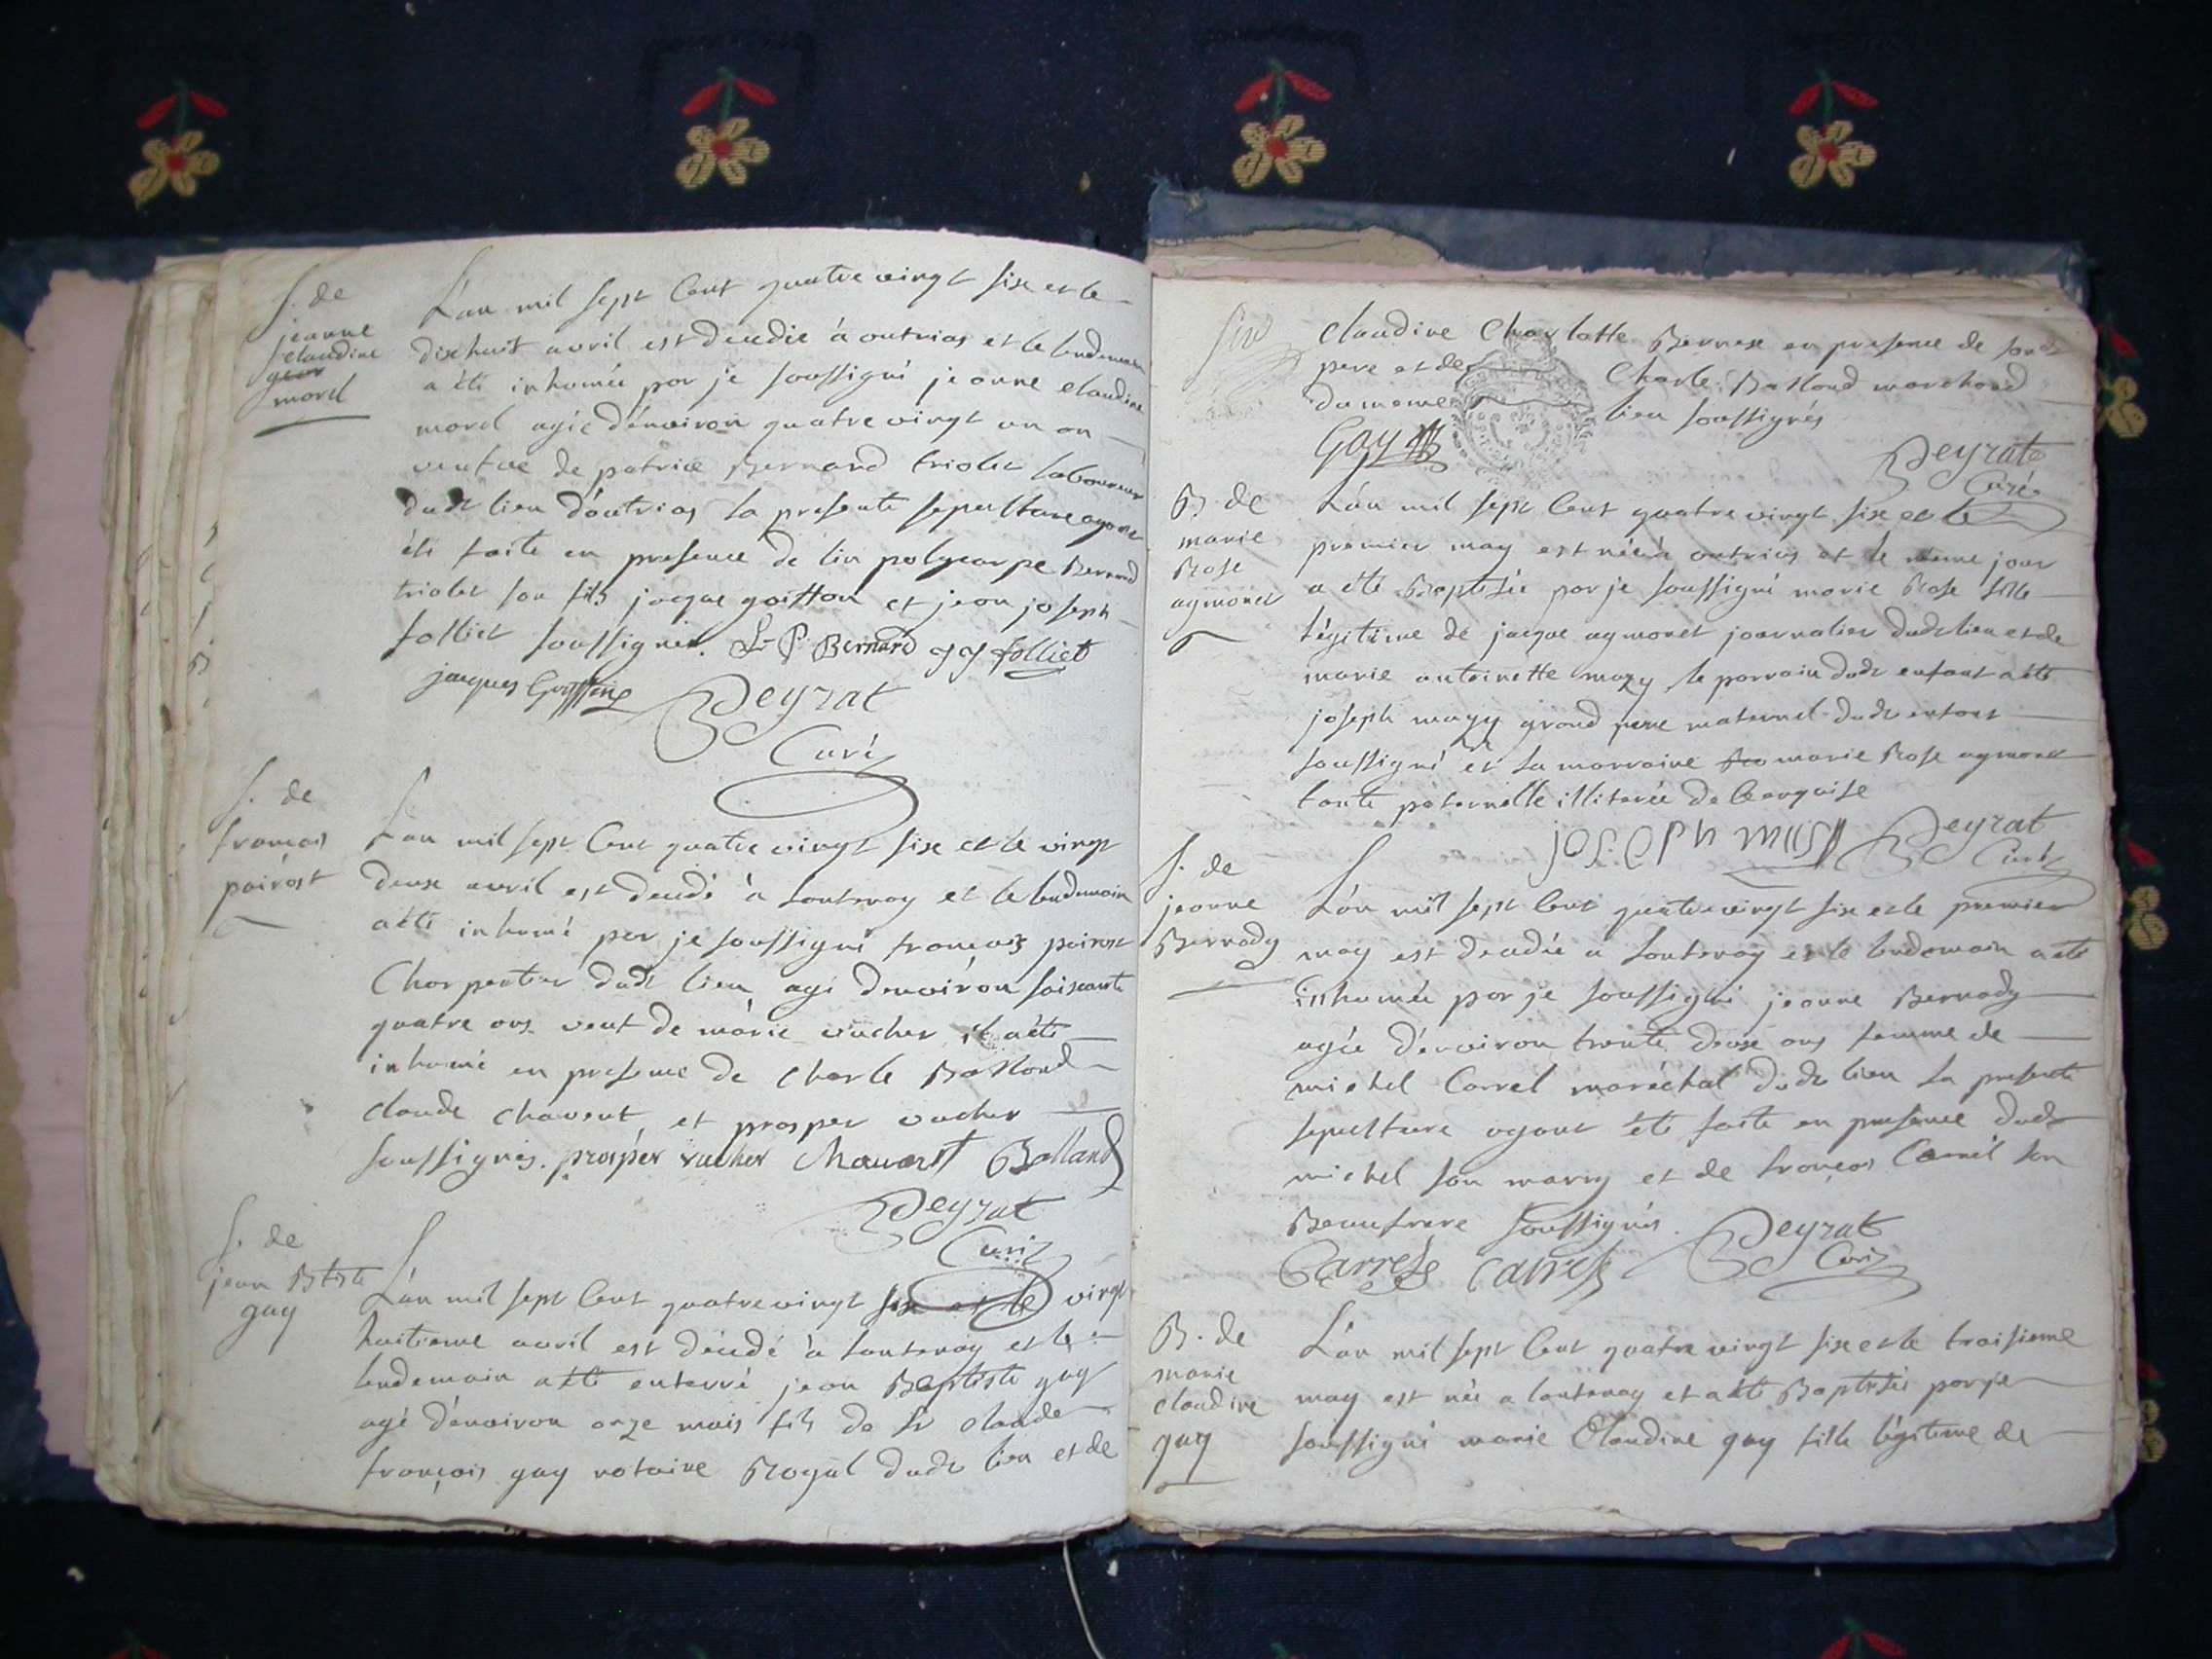 S. de
jeanne
claudine
morel
L'an mil sept Cent quatre vingt six et le
dix huit avril est décédée à outrias et le lendemain
a été inhumée par je soussigné jeanne claudine
morel agée d'environ quatre vingt un an
veufve de patrice Bernard triolet laboureur
dudt lieu d'outrias la presente sepulture ayant
été faite en presence de lin polycarpe Bernard
triolet son fils jacque goiffon et jean joseph
folliet soussignés. L P Bernard JJ folliet
jacques Goiffon Deyrat
Curé
S. de
françois
poirost
L'an mil sept Cent quatre vingt six et le vingt
deux avril est décédé à lantenay et le lendemain
a été inhumé par je soussigné françois poirost
Charpentier dudt lieu agé d'environ soixante
quatre ans veuf de marie vucher il a été
inhumé en presence de Charle Balland
claude chavent et prosper vucher
soussignés. prosper vucher Chavent Balland
Deyrat
Curé
S. de
jean Btiste
guy
L'an mil sept Cent quatre vingt six et le vingt
huitieme avril est décédé à lantenay et le
lendemain a été enterré jean Baptiste guy
agé d'environ onze mois fils de Sr claude
françois guy notaire Royal dudt lieu et de
claudine Charlotte Bernex en presence de sondt
pere et de Charle Balland marchand
du meme lieu soussignés
Guy
Deyrat
Curé
B. de
marie
Rose
aymonet
L'an mil sept Cent quatre vingt six et le
premier may est née à outrias et le meme jour
a été Baptisée par je soussigné marie Rose fille
légitime de jacque aymonet journalier dudt lieu et de
marie antoinette muzy le parrain dudt enfant a été
joseph muzy grand pere maternel dudt enfant
soussigné et la marraine marie Rose aymonet
tante paternelle illiterée de
joseph musy Deyrat
Curé
S. de
jeanne
Bernady
L'an mil sept Cent quatre vingt six et le premier
may est décédée a lantenay et le lendemain a été
inhumée par je soussigné jeanne Bernady
agée d'environ trente deux ans femme de
michel Carrel maréchal dudt lieu la presente
sepulture ayant été faite en presence dudt
michel son mary et de françois Carrel son
Beaufrere soussignés. Deyrat
Carrel Carrel Curé
B. de
marie
claudine
guy
L'an mil sept Cent quatre vingt six et le troisieme
may est née a lantenay et a été Baptisée par je
soussigné marie Claudine guy fille légitime de